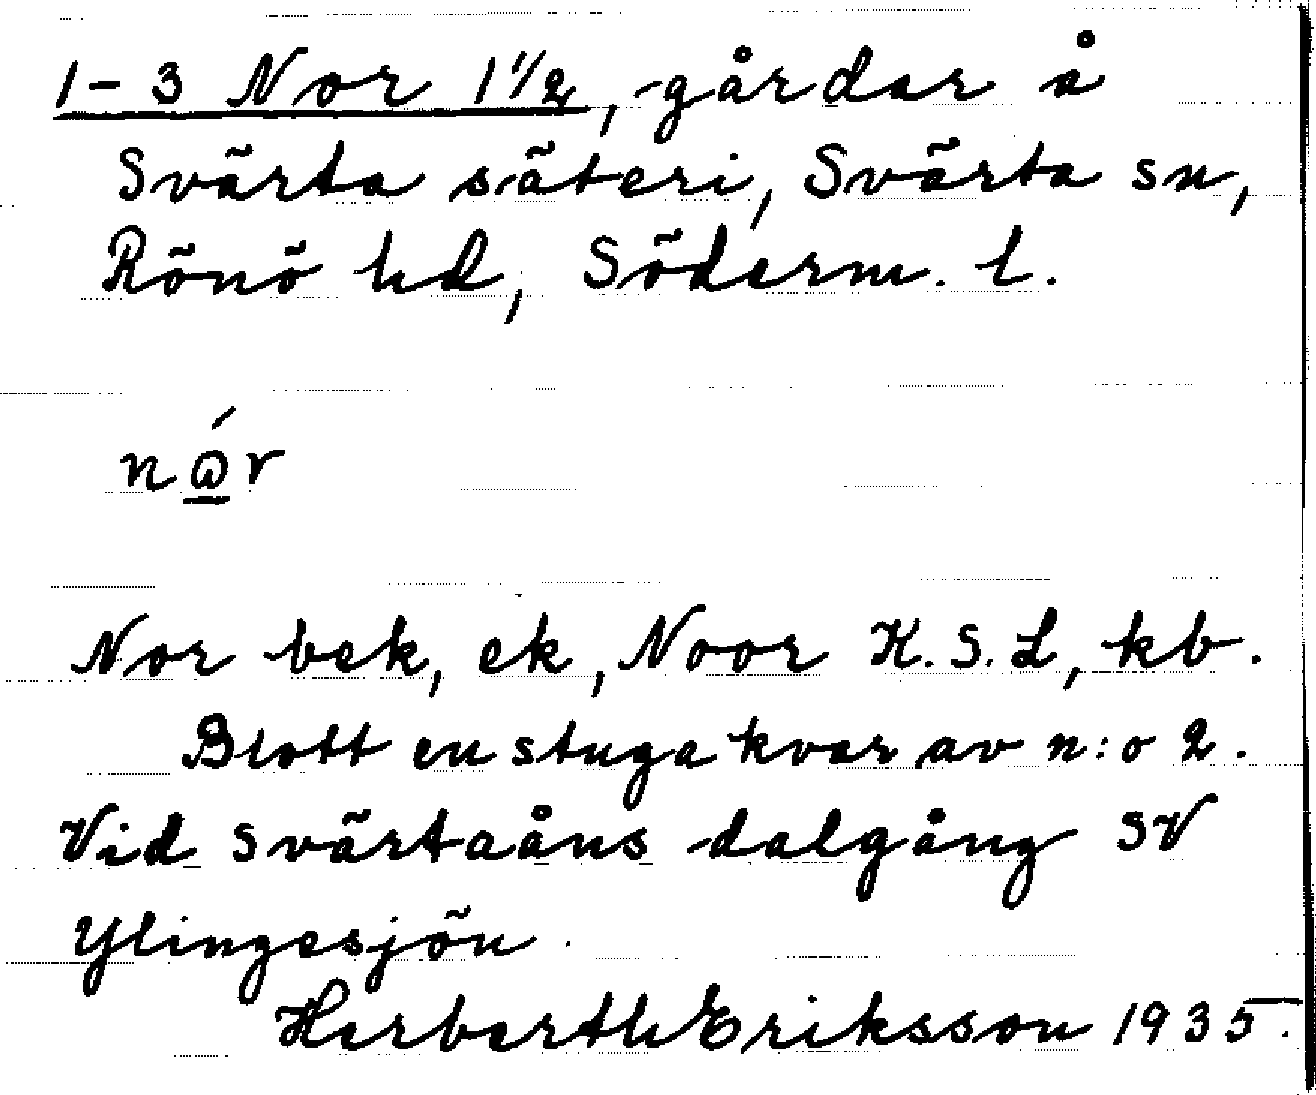 1-3 Nor 1 1/2, gårdar å
Svärta säteri, Svärta sn,
Rönö hd, Söderm. l.
Nor bek, ek, Noor K.S.L, kb.
Blott en stuga kvar av n:o 2.
Vid Svärtaåns dalgång SV
Ylingesjön.
Herbert Eriksson 1935.